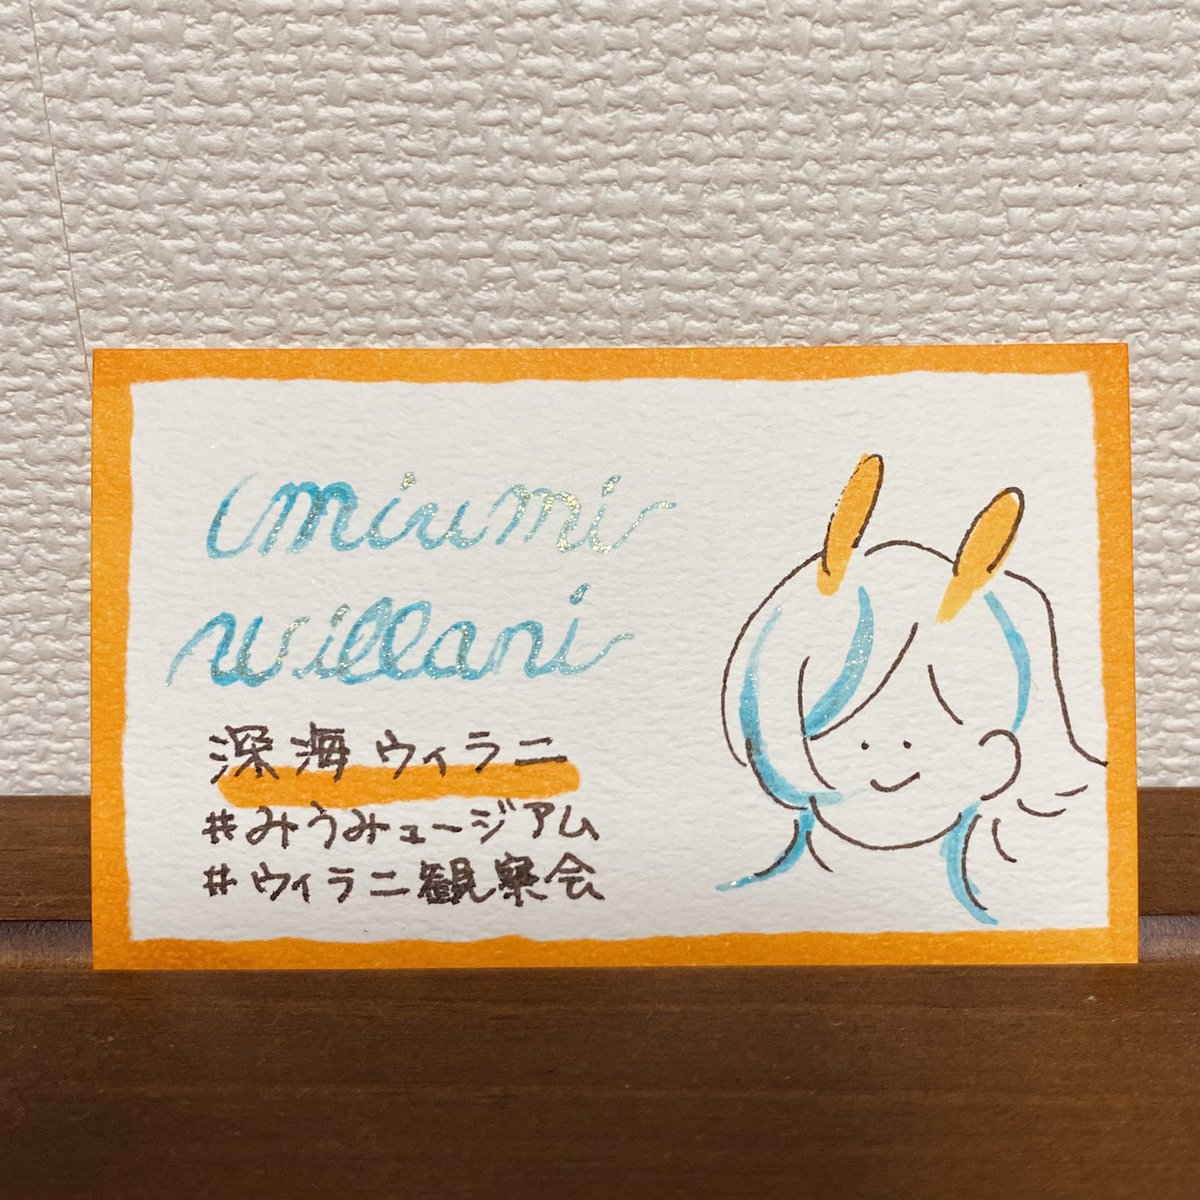 miumi
willani
深海ウィラニ
#みうみュージアム
#ウィラニ観察会